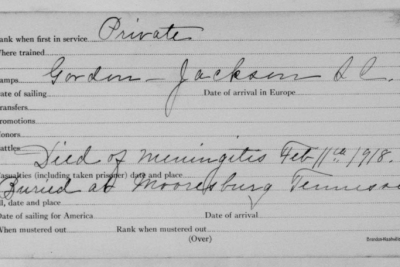 Rank when first in service Private
Where trained
amps Gordon – Jackson S.C.
Date of sailing Date of arrival in Europe
ransfers
romotions
onors
attles
Died of meningitis Feb 11th 1918.
asualties (including taken prisoner) date and place
Buried at Mooresburg Tennessee
ll, date and place
Date of sailing for America Date of arrival
When mustered out Rank when mustered out
(Over)